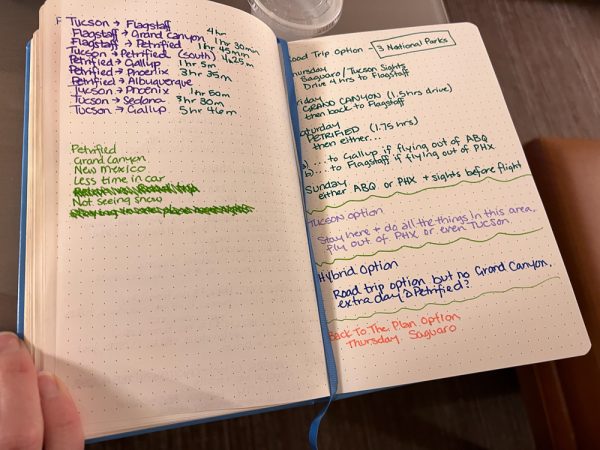 Tucson → Flagstaff 4hr
Flagstaff → Grand Canyon 1 hr 30min
Flagstaff → Petrified 1 hr 45min
Tucson → Petrified (south) 4h25m
Petrified → Gallup 1 hr 5m
Petrified → Phoenix 3hr 35m
Petrified → Albuquerque
Tucson → Phoenix 1hr 50m
Tucson → Sedona 3hr 30m
Tucson → Gallup 5 hr 46m
Petrified
Grand Canyon
New Mexico
Less time in car
Not seeing snow
Road Trip Option - 3 National Parks
Thursday
Saguaro/Tucson Sights
Drive 4 hrs to Flagstaff
Friday
GRAND CANYON (1.5hrs drive)
then back to Flagstaff
Saturday
PETRIFIED (1.75 hrs)
then either...
a) ...to Gallup if flying out of ABQ
b) ...to Flagstaff if flying out of PHX
Sunday
either ABQ or PHX + sights before flight
TUCSON option
Stay here + do all the things in this area,
fly out of PHX or even TUCSON.
Hybrid Option
Road trip option but no Grand Canyon,
extra day @ Petrified?
Back To The Plan Option
Thursday Saguaro